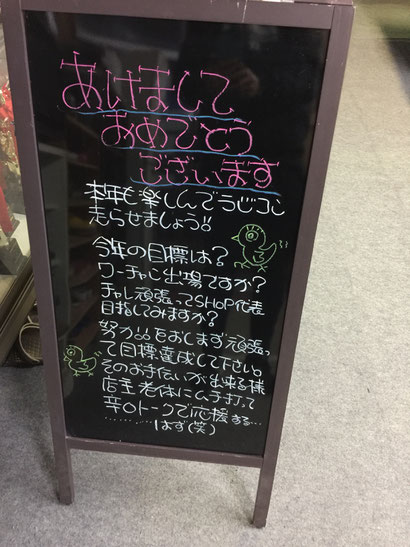 あけまして
おめでとう
ございます
本年も楽しんでラジコン
走らせましょう!!
今年の目標は?
ワーチャに出場ですか?
チャレ頑張ってSHOP代表
目指してみますか?
努力をおしまず頑張っ
て目標達成して下さい。
そのお手伝いが出来る様
店主 老体にムチ打って
辛口トークで応援する…
………はず(笑)